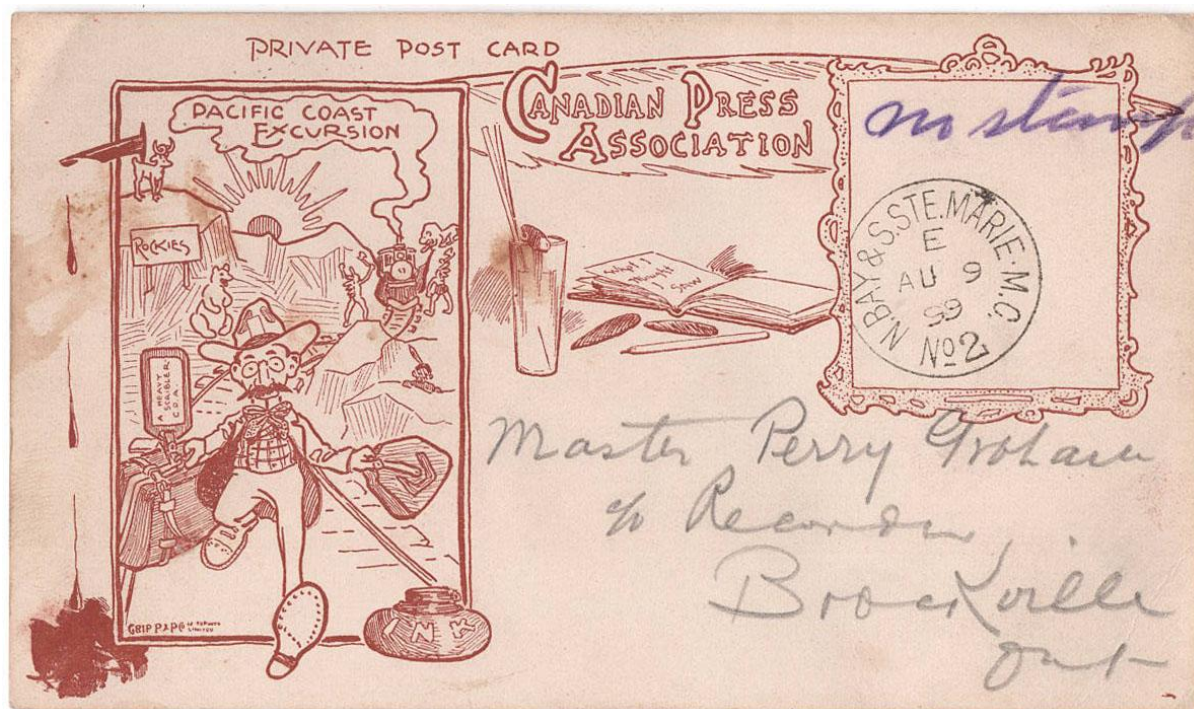 PRIVATE POST CARD
PACIFIC COAST
EXCURSION
CANADIAN PRESS
ASSOCIATION
no stamp
ROCKIES
N. BAY & S. STE. MARIE. M.C.
E
AU 9
99
No 2
A HEAVY
SCRIBLER
C.P.A.
INK
GRIP P & P Co OF TORONTO
LIMITED
Master Perry Graham
c/o Recorder,
Brockville
Ont